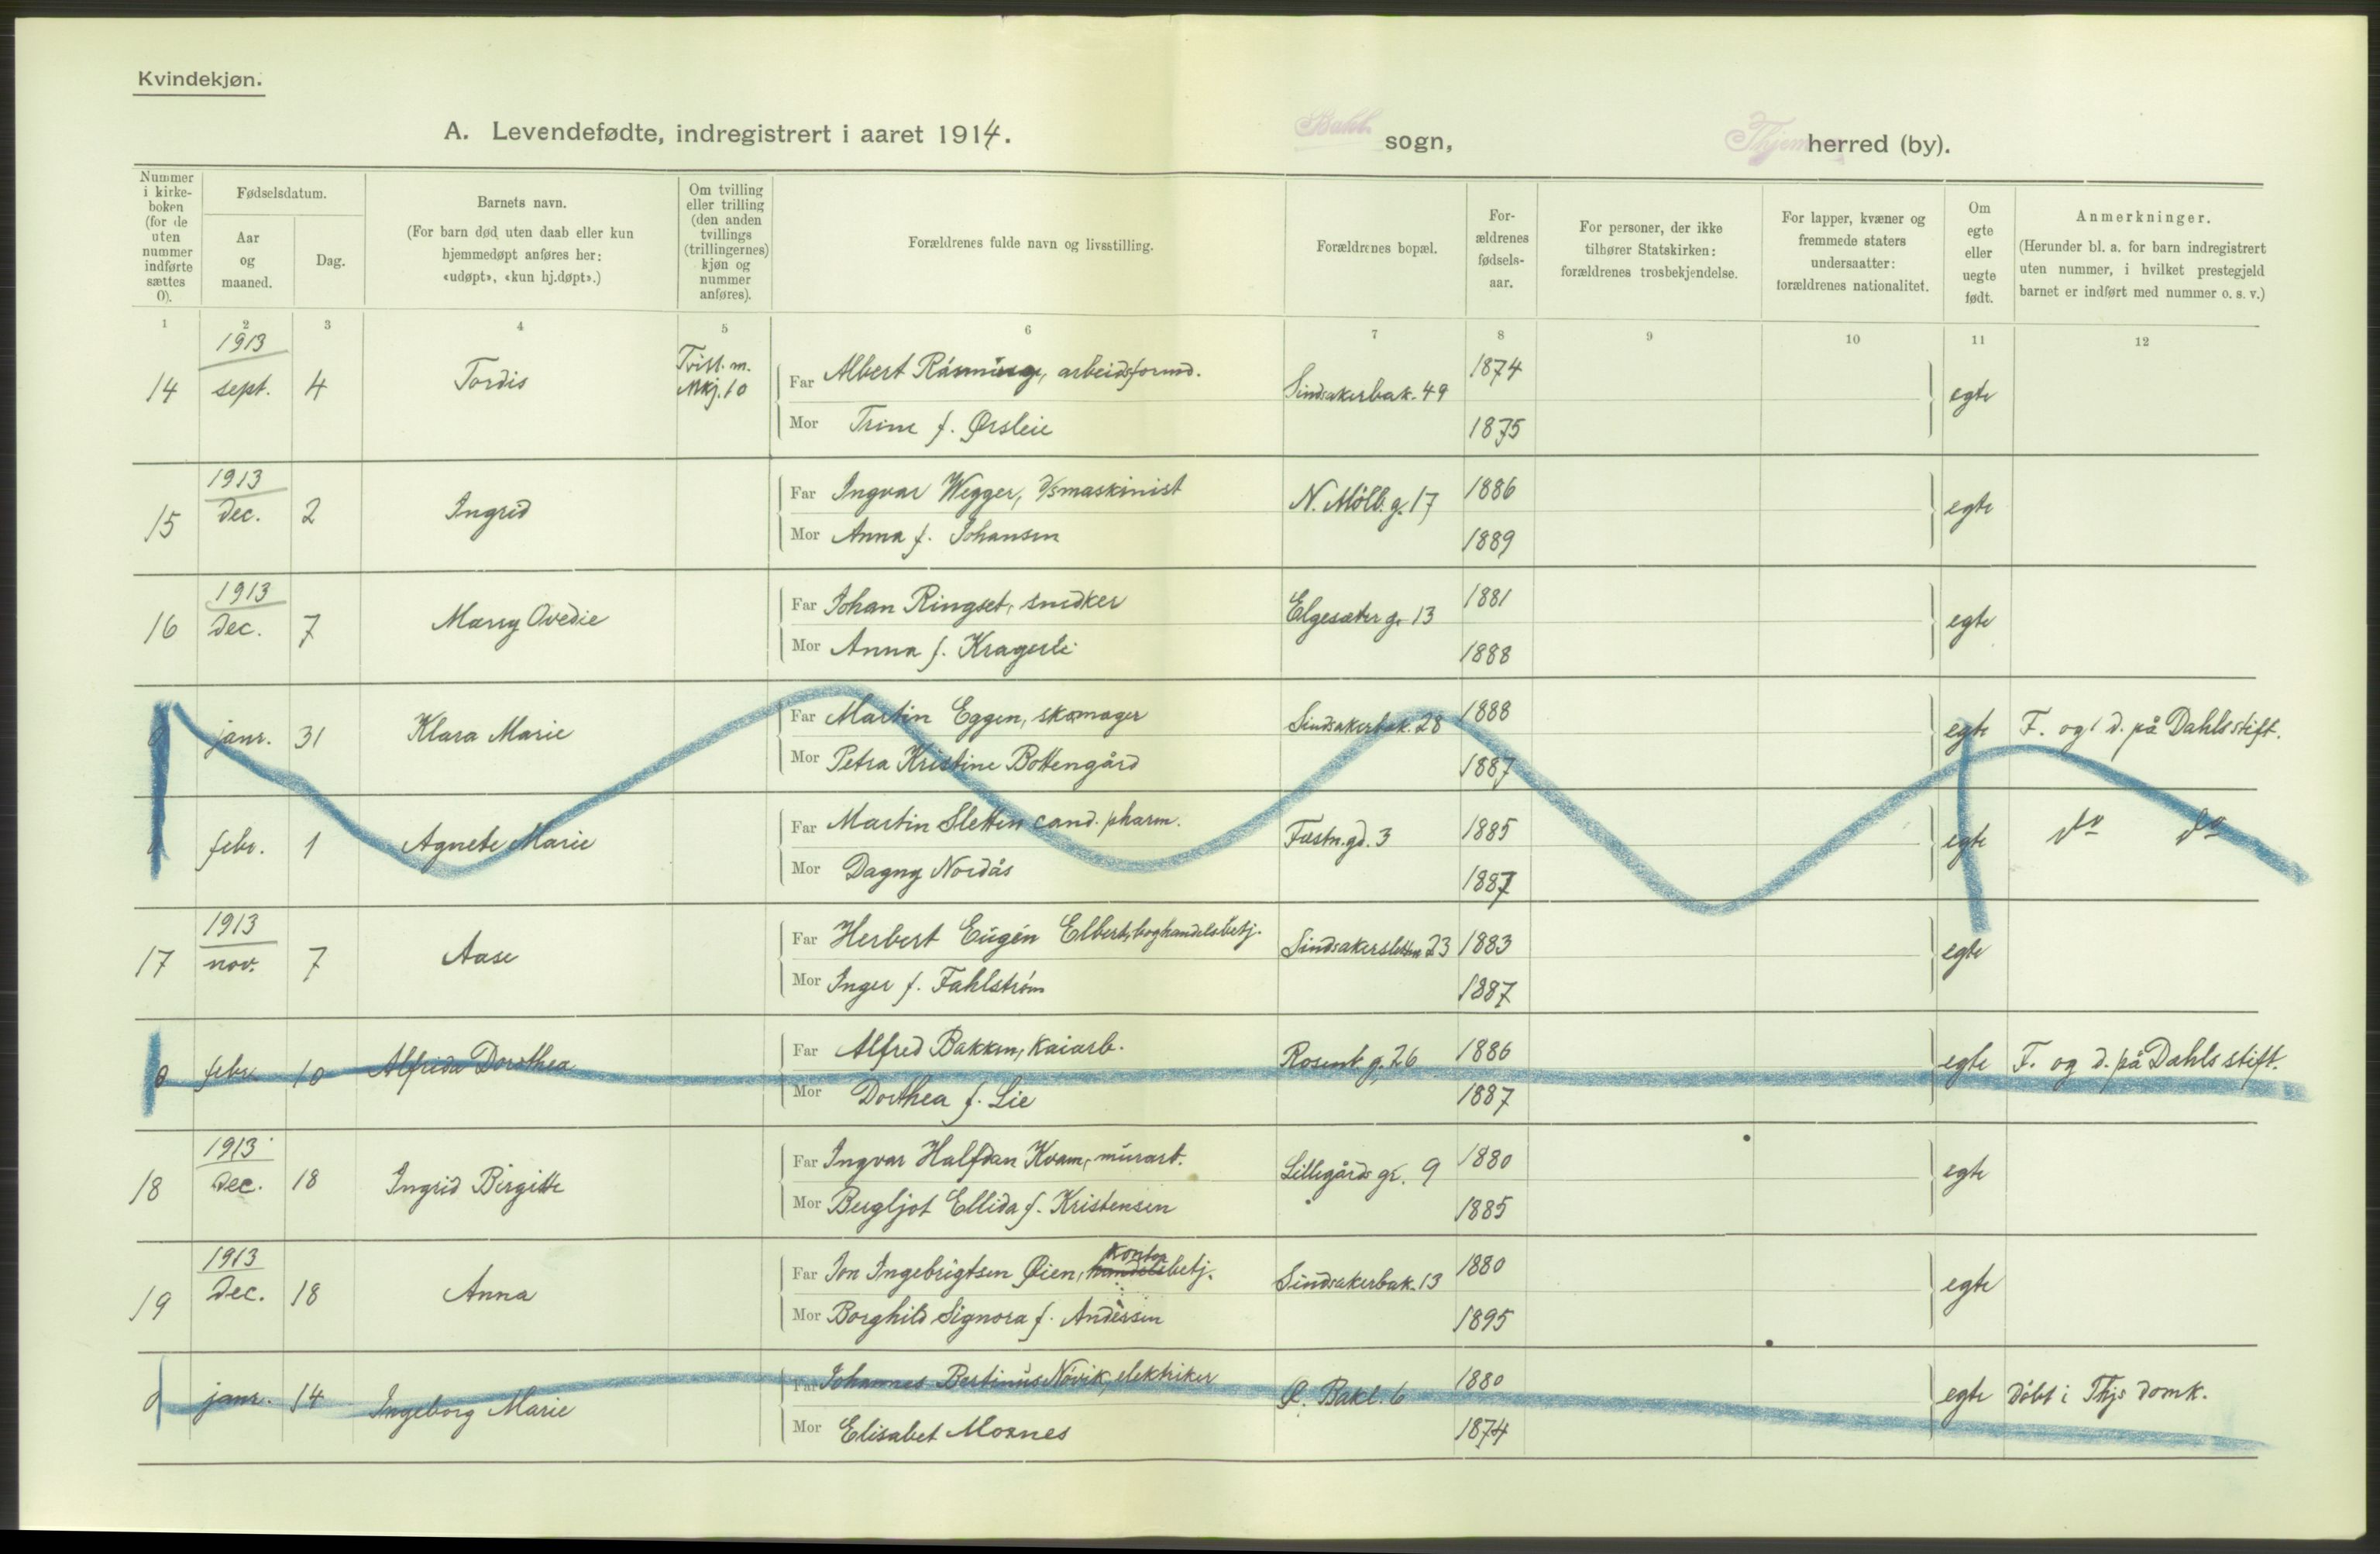 Kvindekjøn.
A. Levendefødte, indregistrert i aaret 1914.
Bakl. sogn,
Thjem herred (by).
Nummer i kirke-boken (for de uten nummer indførte sættes 0).
Fødselsdatum.
Aar og maaned.
Dag.
Barnets navn.
(For barn død uten daab eller kun hjemmedøpt anføres her: «udøpt», «kun hj.døpt».)
Om tvilling eller trilling (den anden tvillings (trillingernes) kjøn og nummer anføres).
Forældrenes fulde navn og livsstilling.
Forældrenes bopæl.
For-ældrenes fødsels-aar.
For personer, der ikke tilhører Statskirken: forældrenes trosbekjendelse.
For lapper, kvæner og fremmede staters undersaatter: forældrenes nationalitet.
Om egte eller uegte født.
Anmerkninger.
(Herunder bl. a. for barn indregistrert uten nummer, i hvilket prestegjeld barnet er indført med nummer o. s. v.)
1 2 3 4 5 6 7 8 9 10 11 12
14 1913 sept. 4 Tordis Tvill. m. Mkj. 10
Far Albert arbeidsformd. Sindsakerbak. 49 1874 egte
Mor Trine f. Ørsleie 1875
15 1913 Dec. 2 Ingrid
Far Ingvar Wegger, d/smaskinist N. Möllb. g. 17 1886 egte
Mor Anna f. Johansen 1889
16 1913 Dec. 7 Marry Ovedie
Far Johan Ringset, snedker Elgesæter g. 13 1881 egte
Mor Anna f. Kragerli 1888
0 janr. 31 Klara Marie
Far Martin Eggen, skomager Sindsakerbak. 28 1888 egte F. og d. på Dahls stift.
Mor Petra Kristine Bottengård 1887
0 febr. 1 Agnete Marie
Far Martin Sletten cand. pharm. Fæstn.gd. 3 1885 egte do do
Mor Dagny Nordås 1887
17 1913 nov. 7 Aase
Far Herbert Eugén Elbert, boghandelsbetj. Sindsakersletten 23 1883 egte
Mor Inger f. Fahlström 1887
0 febr. 10 Alfrida Dorothea
Far Alfred Bakken, kaiarb. Rosenb. g. 26 1886 egte F. og d. på Dahls stift.
Mor Dorthea f. Lie 1887
18 1913 Dec. 18 Ingrid Birgitte
Far Ingvar Halfdan Kvam, murarb. Lillegårds gt. 9 1880 egte
Mor Bergljot Ellida f. Kristensen 1885
19 1913 Dec. 18 Anna
Far Jon Ingebrigtsen Øien, handels kontor betj. Sindsakerbak. 13 1880 egte
Mor Borghild Signora f. Andersen 1895
0 janr. 14 Ingeborg Marie
Far Johannes Bertinus Növik, elektriker Ø. Bakl. 6 1880 egte Döbt i Thjs domk.
Mor Elisabet Moxnes 1874